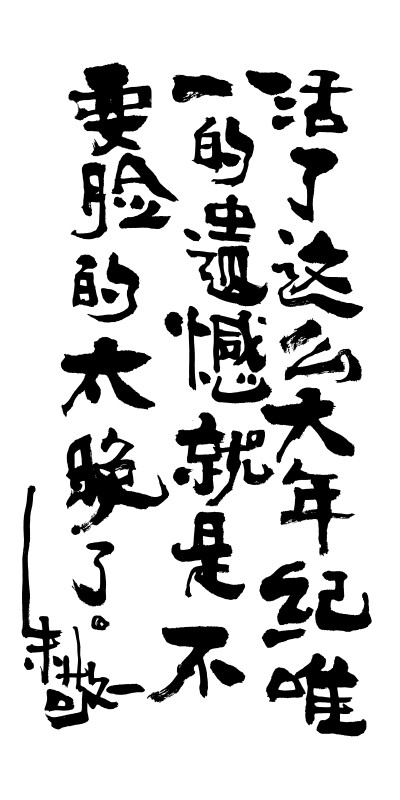 活了这么大年纪唯
一的遗憾就是不
要脸的太晚了。
朱敬一